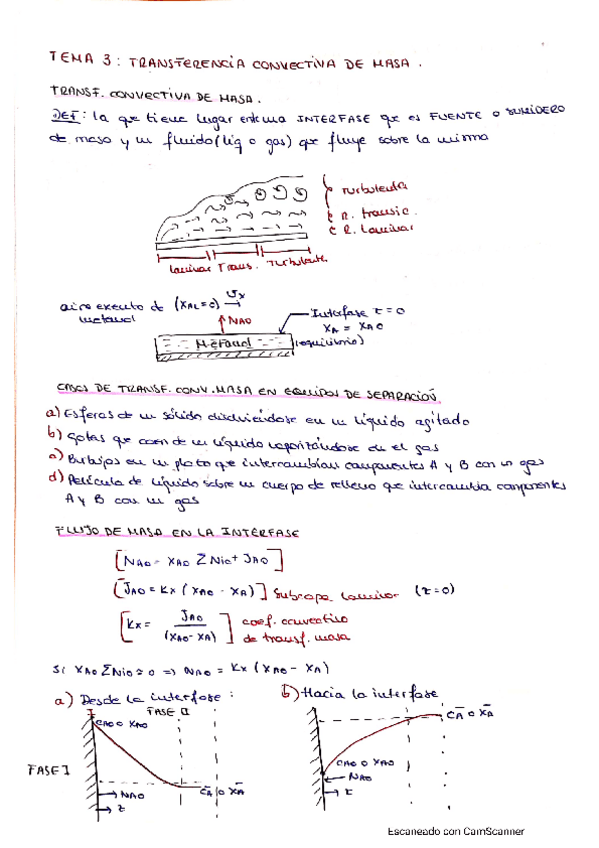 TEMA 3: TRANSFERENCIA CONVECTIVA DE MASA.
TRANSF. CONVECTIVA DE MASA.
DEF: la que tiene lugar entre una INTERFASE que es FUENTE O SUMIDERO
de masa y un fluido (liq o gas) que fluye sobre la misma
Turbulenta
R. transic.
R. Laminar
Laminar Trans. Turbulenta
aire exento de (XAL=0) Ux
metanol
NAO
Interfase z=0
XA = XAO
Metanol
(equilibrio)
CASOS DE TRANSF. CONV. MASA EN EQUIPOS DE SEPARACIÓN
a) Esferas de un sólido disolviéndose en un líquido agitado
b) Gotas que caen de un líquido vaporizándose en el gas
c) Burbujas en un plato que intercambian componentes A y B con un gas
d) Película de líquido sobre un cuerpo de relleno que intercambia componentes
A y B con un gas
FLUJO DE MASA EN LA INTERFASE
[NAO = XAO ΣNio + JAO]
[JAO = Kx (XAO - XA)] Subcapa laminar (z=0)
[Kx = JAO / (XAO-XA)] coef. convectivo
de transf. masa
Si XAO ΣNio ≈ 0 => NAO = Kx (XAO - XA)
a) Desde la interfase:
b) Hacia la interfase
FASE II
CAO o XAO
FASE I
C̄A o X̄A
NAO
z
C̄A o X̄A
CAO o XAO
NAO
z
Escaneado con CamScanner